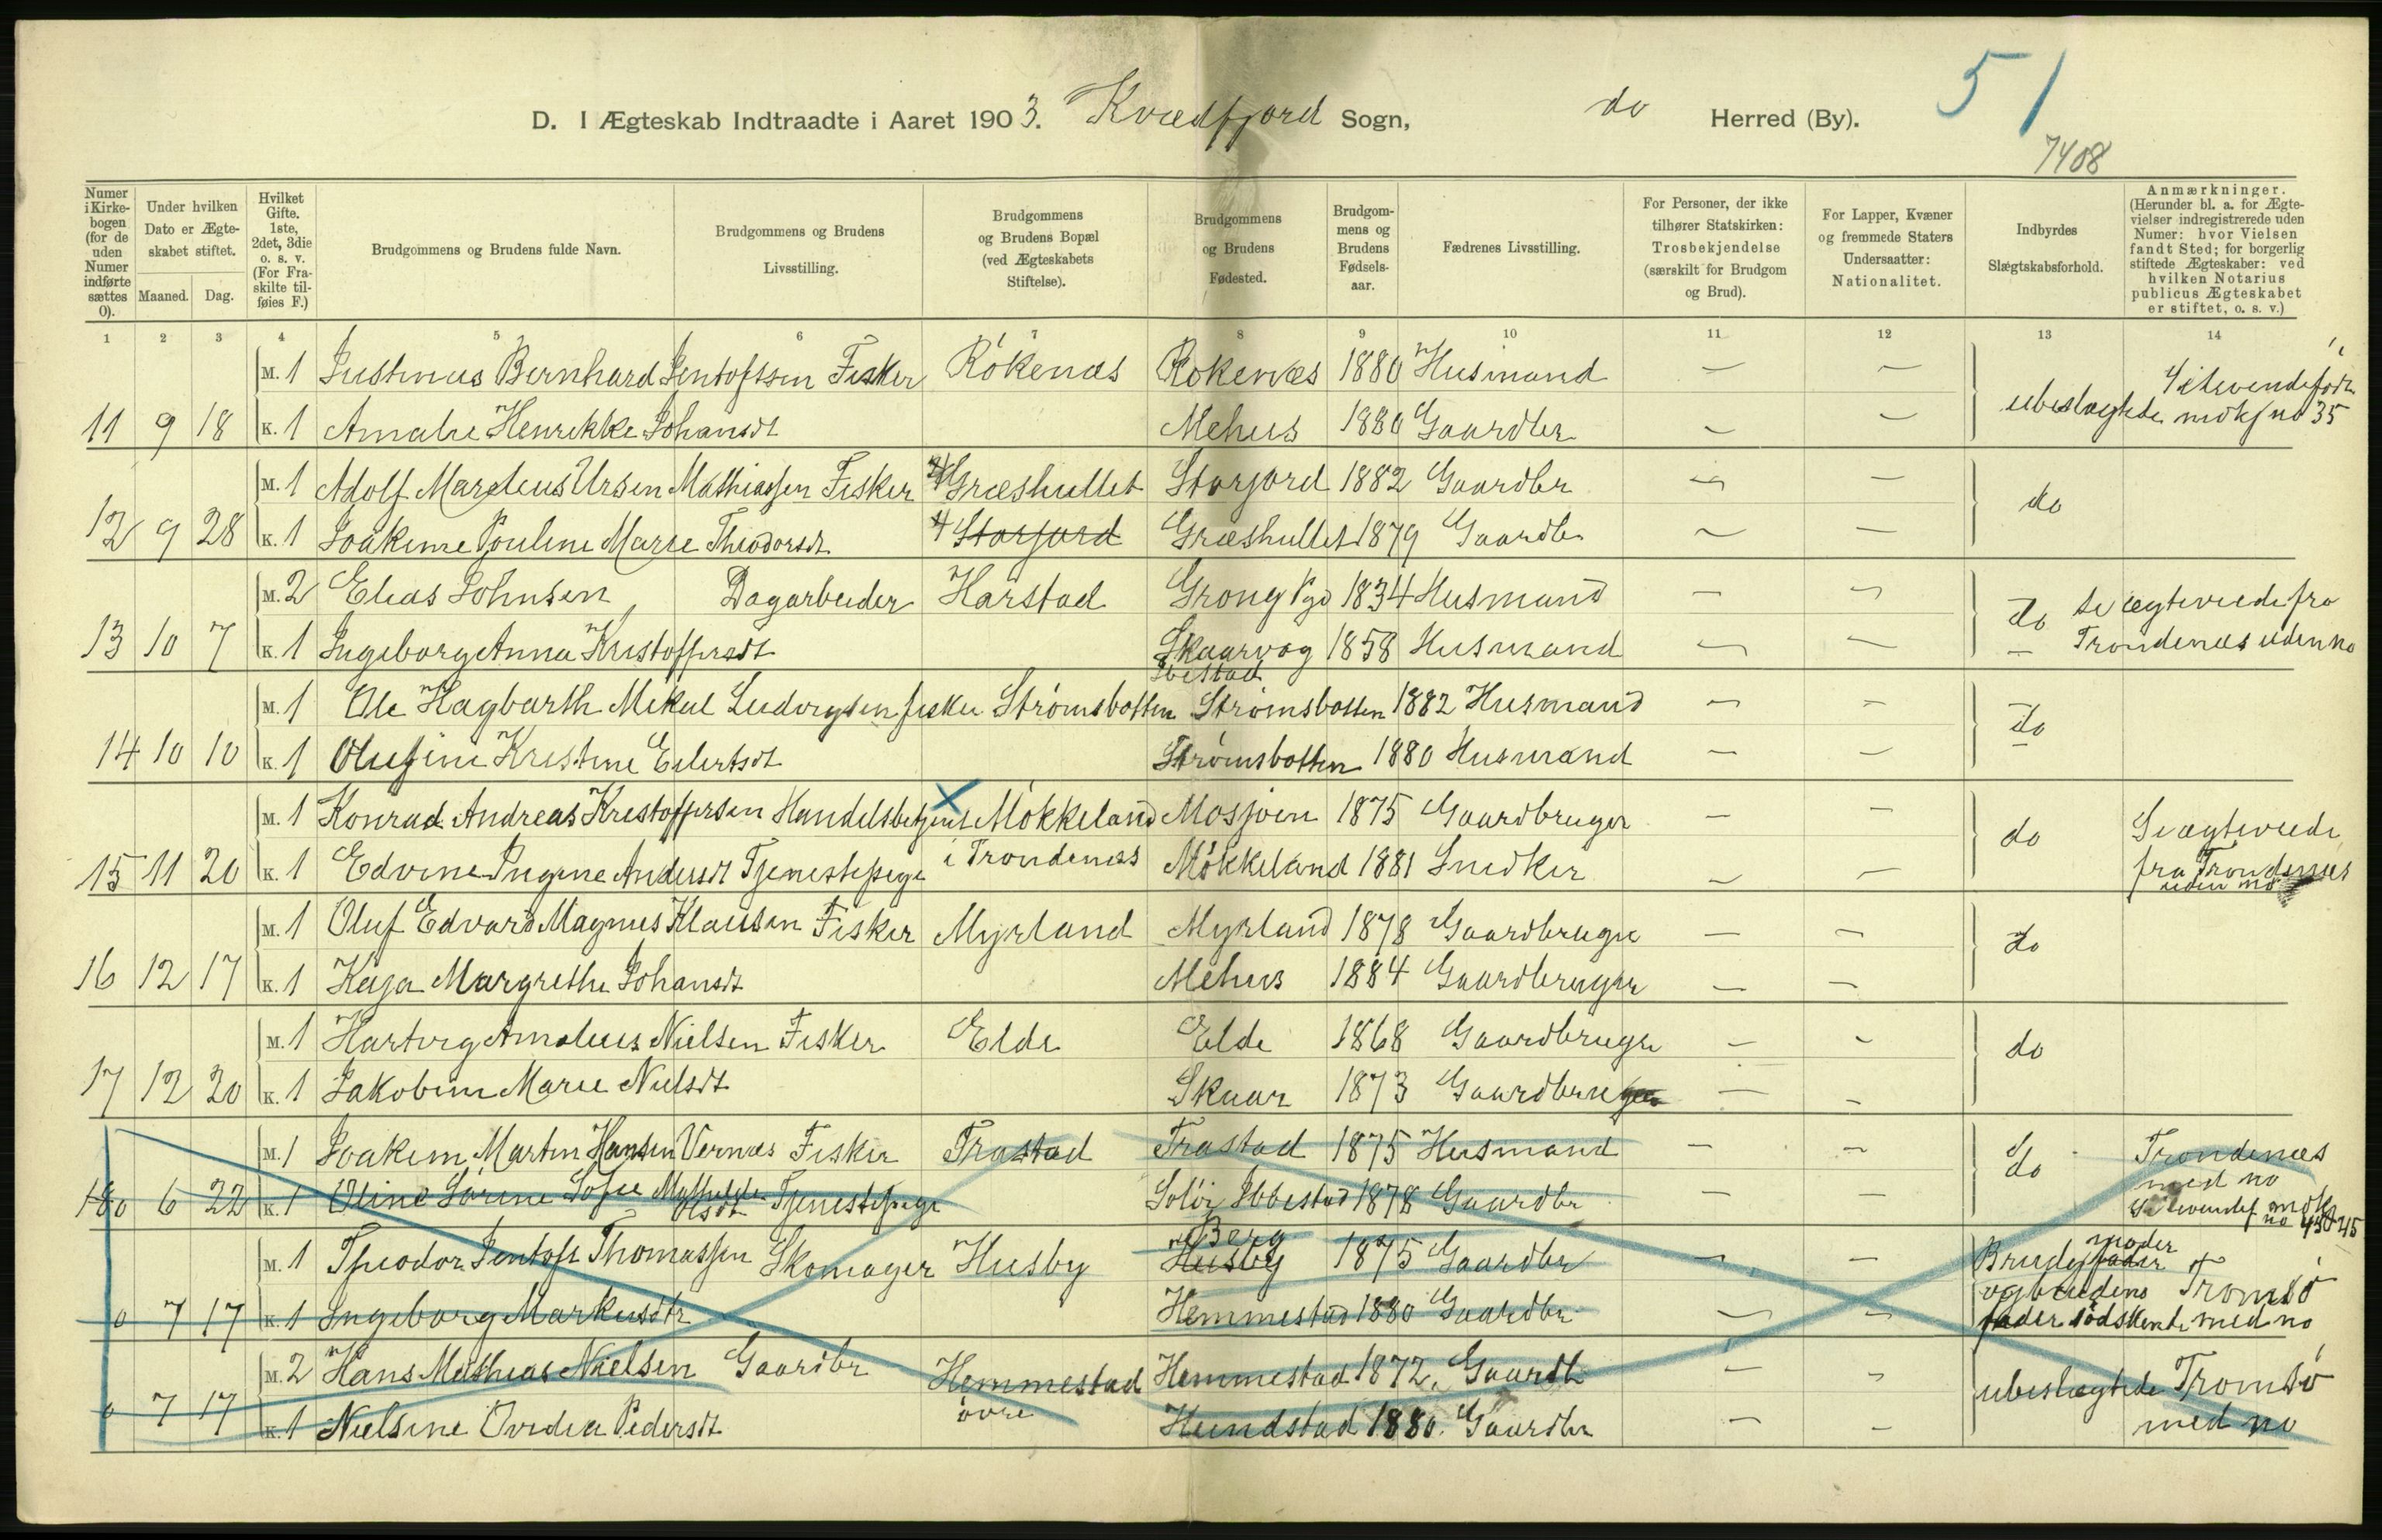 51
D. I Ægteskab Indtraadte i Aaret 1903. Kvædfjord Sogn, do Herred (By).
7408
Numer i Kirkebogen (for de uden Numer indførte sættes 0).
Under hvilken Dato er Ægteskabet stiftet.
Maaned. Dag.
Hvilket Gifte. 1ste, 2det, 3die o. s. v. (For Fraskilte tilføies F.)
Brudgommens og Brudens fulde Navn.
Brudgommens og Brudens Livsstilling.
Brudgommens og Brudens Bopæl (ved Ægteskabets Stiftelse).
Brudgommens og Brudens Fødested.
Brudgommens og Brudens Fødselsaar.
Fædrenes Livsstilling.
For Personer, der ikke tilhører Statskirken: Trosbekjendelse (særskilt for Brudgom og Brud).
For Lapper, Kvæner og fremmede Staters Undersaatter: Nationalitet.
Indbyrdes Slægtskabsforhold.
Anmærkninger. (Herunder bl. a. for Ægtevielser indregistrerede uden Numer: hvor Vielsen fandt Sted; for borgerlig stiftede Ægteskaber: ved hvilken Notarius publicus Ægteskabet er stiftet, o. s. v.)
1 2 3 4 5 6 7 8 9 10 11 12 13 14
M. 1 Justinus Bernhard Jentoftsen Fisker Rökenæs Rokenæs 1880 Husmand — —
11 9 18 K. 1 Amalie Henrikke Johansdt Mehus 1880 Gaardbr — — ubeslægtede no 35
M. 1 Adolf Marelius Ursin Mathiassen Fisker Græshullet Storjord 1882 Gaardbr — — do
12 9 28 K. 1 Joakime Pouline Marie Theodorsdt Storjord Græshullet 1879 Gaardb — —
M. 2 Elias Johnsen Dagarbeider Harstad Grong Pgd 1834 Husmand — — do se ægteviede fra
13 10 7 K. 1 Ingeborg Anna Kristoffersdt Skaarvog Ibestad 1858 Husmand — — Trondenæs uden no
M. 1 Ole Hagbarth Mikal Ludvigsen fisker Strömsbotten Strömsbotten 1882 Husmand — — do
14 10 10 K. 1 Olufine Kristine Eilertsdt Strömsbotten 1880 Husmand — —
M. 1 Konrad Andreas Kristoffersen Handelsbetjent Mökkeland Mosjöen 1875 Gaardbruger — — do Se ægteviede
15 11 20 K. 1 Edvine Ingine Andersdt Tjenestepige i Trondenæs Mökkeland 1881 Snedker — — fra Trondenæs uden no
M. 1 Oluf Edvard Magnus Klausen Fisker Myrland Myrland 1878 Gaardbruger — — do
16 12 17 K. 1 Kaja Margrethe Johansdt Mehus 1884 Gaardbruger — —
M. 1 Hartvig Amoleus Nielsen Fisker Elde Elde 1868 Gaardbruger — — do
17 12 20 K. 1 Jakobine Marie Nielsdt Skaar 1873 Gaardbruger — —
M. 1 Joakim Martin Hansen Vernæs Fisker Trastad Trastad 1875 Husmand — — do Trondenæs med no
0 6 22 K. 1 Oline Sörine Sofie Mathilde Olsdt Tjenestepige Solöi Ibbestad 1878 Gaardbr — — no 45
M. 1 Theodor Jentoft Thomassen Skomager Husby Husby Berg 1875 Gaardbr — — Brudg fader moder
0 7 17 K. 1 Ingeborg Markusdtr Hemmestad 1880 Gaardbr — — og brudens fader sødskende Tromsö med no
M. 2 Hans Mathias Nielsen Gaardbr Hemmestad övre Hemmestad 1872 Gaardb — — ubeslægtede Tromsö
0 7 17 K. 1 Nielsine Ovidia Pedersdt Hundstad 1880 Gaardbr — — med no